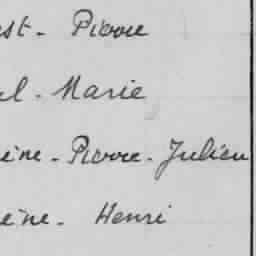 st - Pierre
el - Marie
eine - Pierre - Julien
eine - Henri